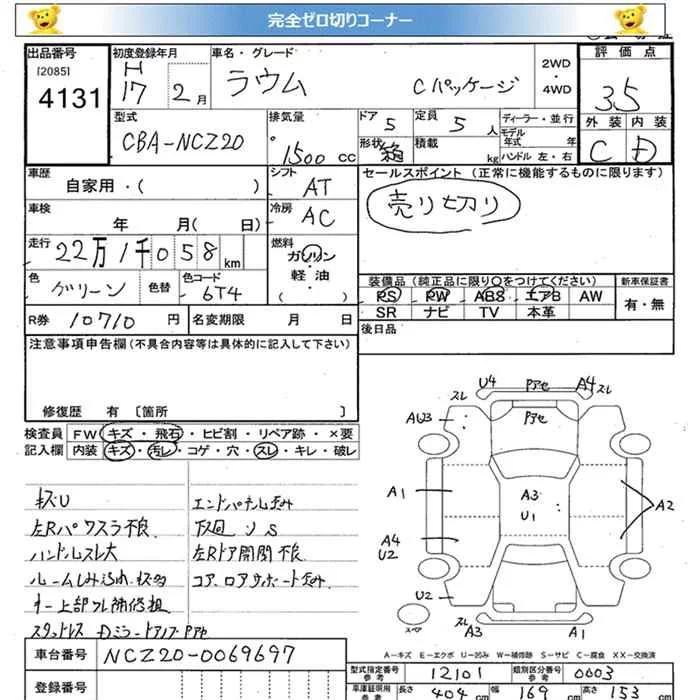 完全ゼロ切りコーナー
出品番号
[2085]
4131
初度登録年月
H
17 2月
車名・グレード
ラウム Cパッケージ
2WD
・
4WD
評価点
3.5
外装 内装
C D
型式
CBA-NCZ20
排気量
1500 cc
ドア 5
形状 箱
定員 5 人
積載 kg
ディーラー・並行
モデル年式 年
ハンドル 左・右
車歴
自家用・( )
シフト
AT
セールスポイント (正常に機能するものに限ります)
売り切り
車検
年 月(日)
冷房
AC
走行 22万1千058 km
燃料
ガソリン
軽・油
・( )
色
グリーン
色替
色コード
6T4
装備品(純正品に限り○をつけてください)
新車保証書
PS PW ABS エアB AW
SR ナビ TV 本革
有・無
R券 10710 円
名変期限 月 日
後日品
注意事項申告欄(不具合内容等は具体的に記入して下さい)
修復歴 有 [箇所 ]
検査員
記入欄
FW キズ・飛石・ヒビ割・リペア跡・×要
内装 キズ・汚レ・コゲ・穴・スレ・キレ・破レ
キズU
左Rパワスラ不良
ハンドルスレ大
スタッドレス
エンドパネル歪み
下廻りS
左Rドア開閉不良
コア、ロアサポート歪み
U4 Pアセ A4 スレ
スレ
AU3
Pアセ
A1
A3
U1
A2
A4
U2
U2
スペア
スレ A3
A1
A-キズ E-エクボ U-凹み W-補修跡 S-サビ C-腐食 XX-交換済
車台番号 NCZ20-0069697
型式指定番号
参考
12101
類別区分番号
参考
0003
登録番号
車庫証明用
参考
長さ 404 cm
幅 169 cm
高さ 153 cm